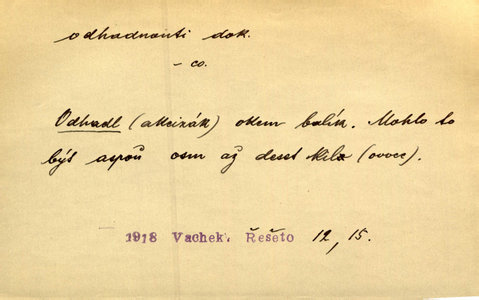 odhadnouti dok.
- co.
Odhadl (akcizák) okem balík. Mohlo to
býs aspoň osm až deset kila (ovoce).
1918 Vachek. Řešeto 12, 15.